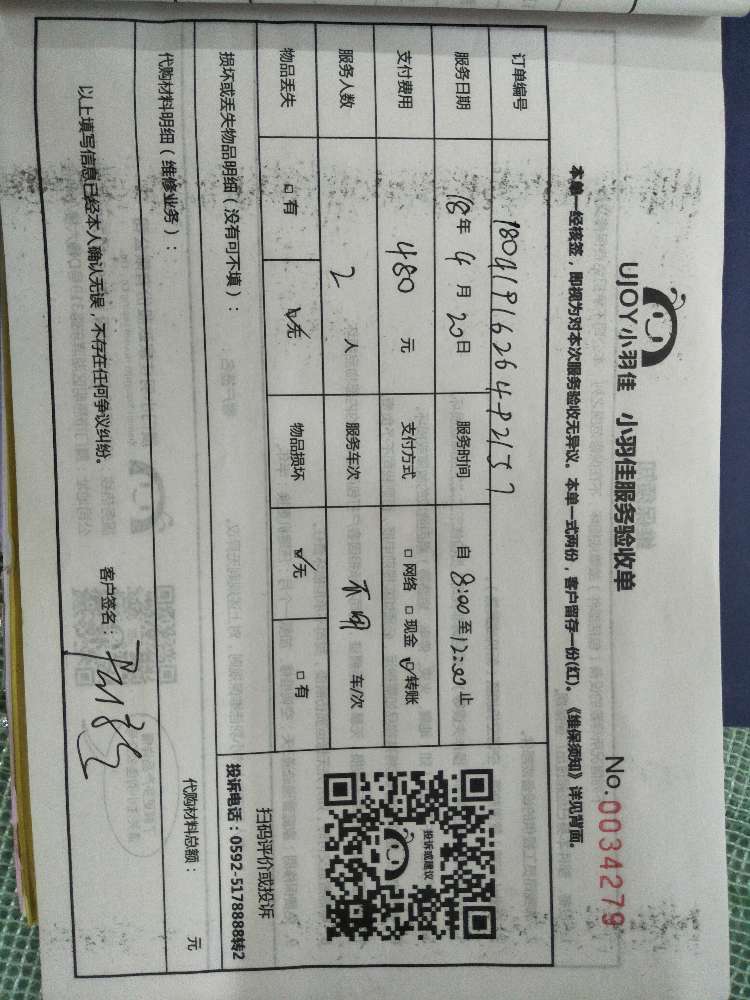 UJOY小羽佳 小羽佳服务验收单
No.0034279
本单一经核签，即视为对本次服务验收无异议。本单一式两份，客户留存一份(红)。《维保须知》详见背面。
订单编号 1804191626482137
服务日期 18年4月20日 服务时间 自8:00至12:00止
支付费用 480 元 支付方式 □网络 □现金 ☑转账
服务人数 2 人 服务车次 不用 车/次
物品丢失 □有 ☑无 物品损坏 ☑无 □有
投诉或建议
扫码评价或投诉
投诉电话：0592-5178888转2
损坏或丢失物品明细（没有可不填）：
代购材料明细（维修业务）：
代购材料总额： 元
以上填写信息已经本人确认无误，不存在任何争议纠纷。
客户签名：